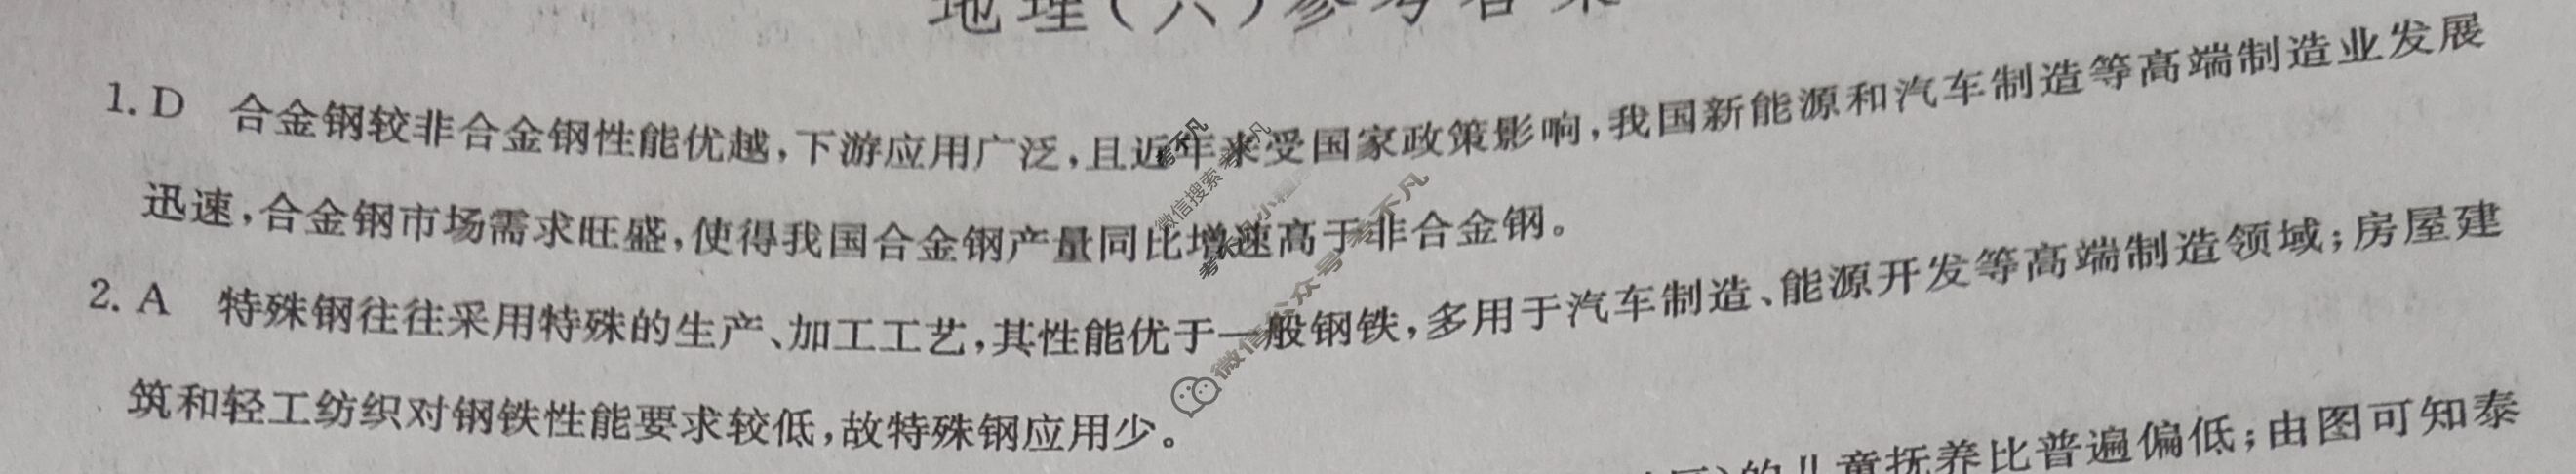 地理(六)参考答案
1. D 合金钢较非合金钢性能优越,下游应用广泛,且近年来受国家政策影响,我国新能源和汽车制造等高端制造业发展
迅速,合金钢市场需求旺盛,使得我国合金钢产量同比增速高于非合金钢。
2. A 特殊钢往往采用特殊的生产、加工工艺,其性能优于一般钢铁,多用于汽车制造、能源开发等高端制造领域;房屋建
筑和轻工纺织对钢铁性能要求较低,故特殊钢应用少。
的儿童抚养比普遍偏低;由图可知泰
考不凡
微信搜索 考不凡
考不凡小程序
微信公众号 考不凡